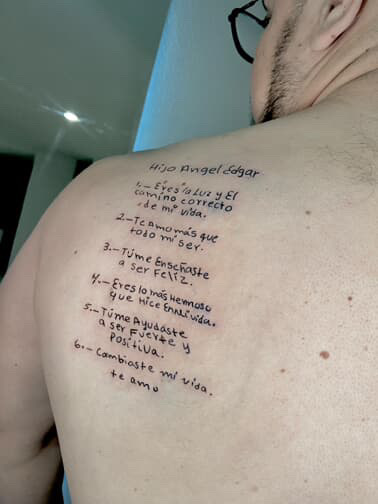 Hijo Angel Edgar
1.- Eres la Luz y El
camino correcto
de mi vida.
2.- Te Amo más que
todo mi ser.
3.- Túme Enseñaste
a ser Feliz.
4.- Eres lo más Hermoso
que Hice En Mi vida.
5.- Túme Ayudaste
a ser Fuerte y
Positiva.
6.- Cambiaste mi vida.
te amo